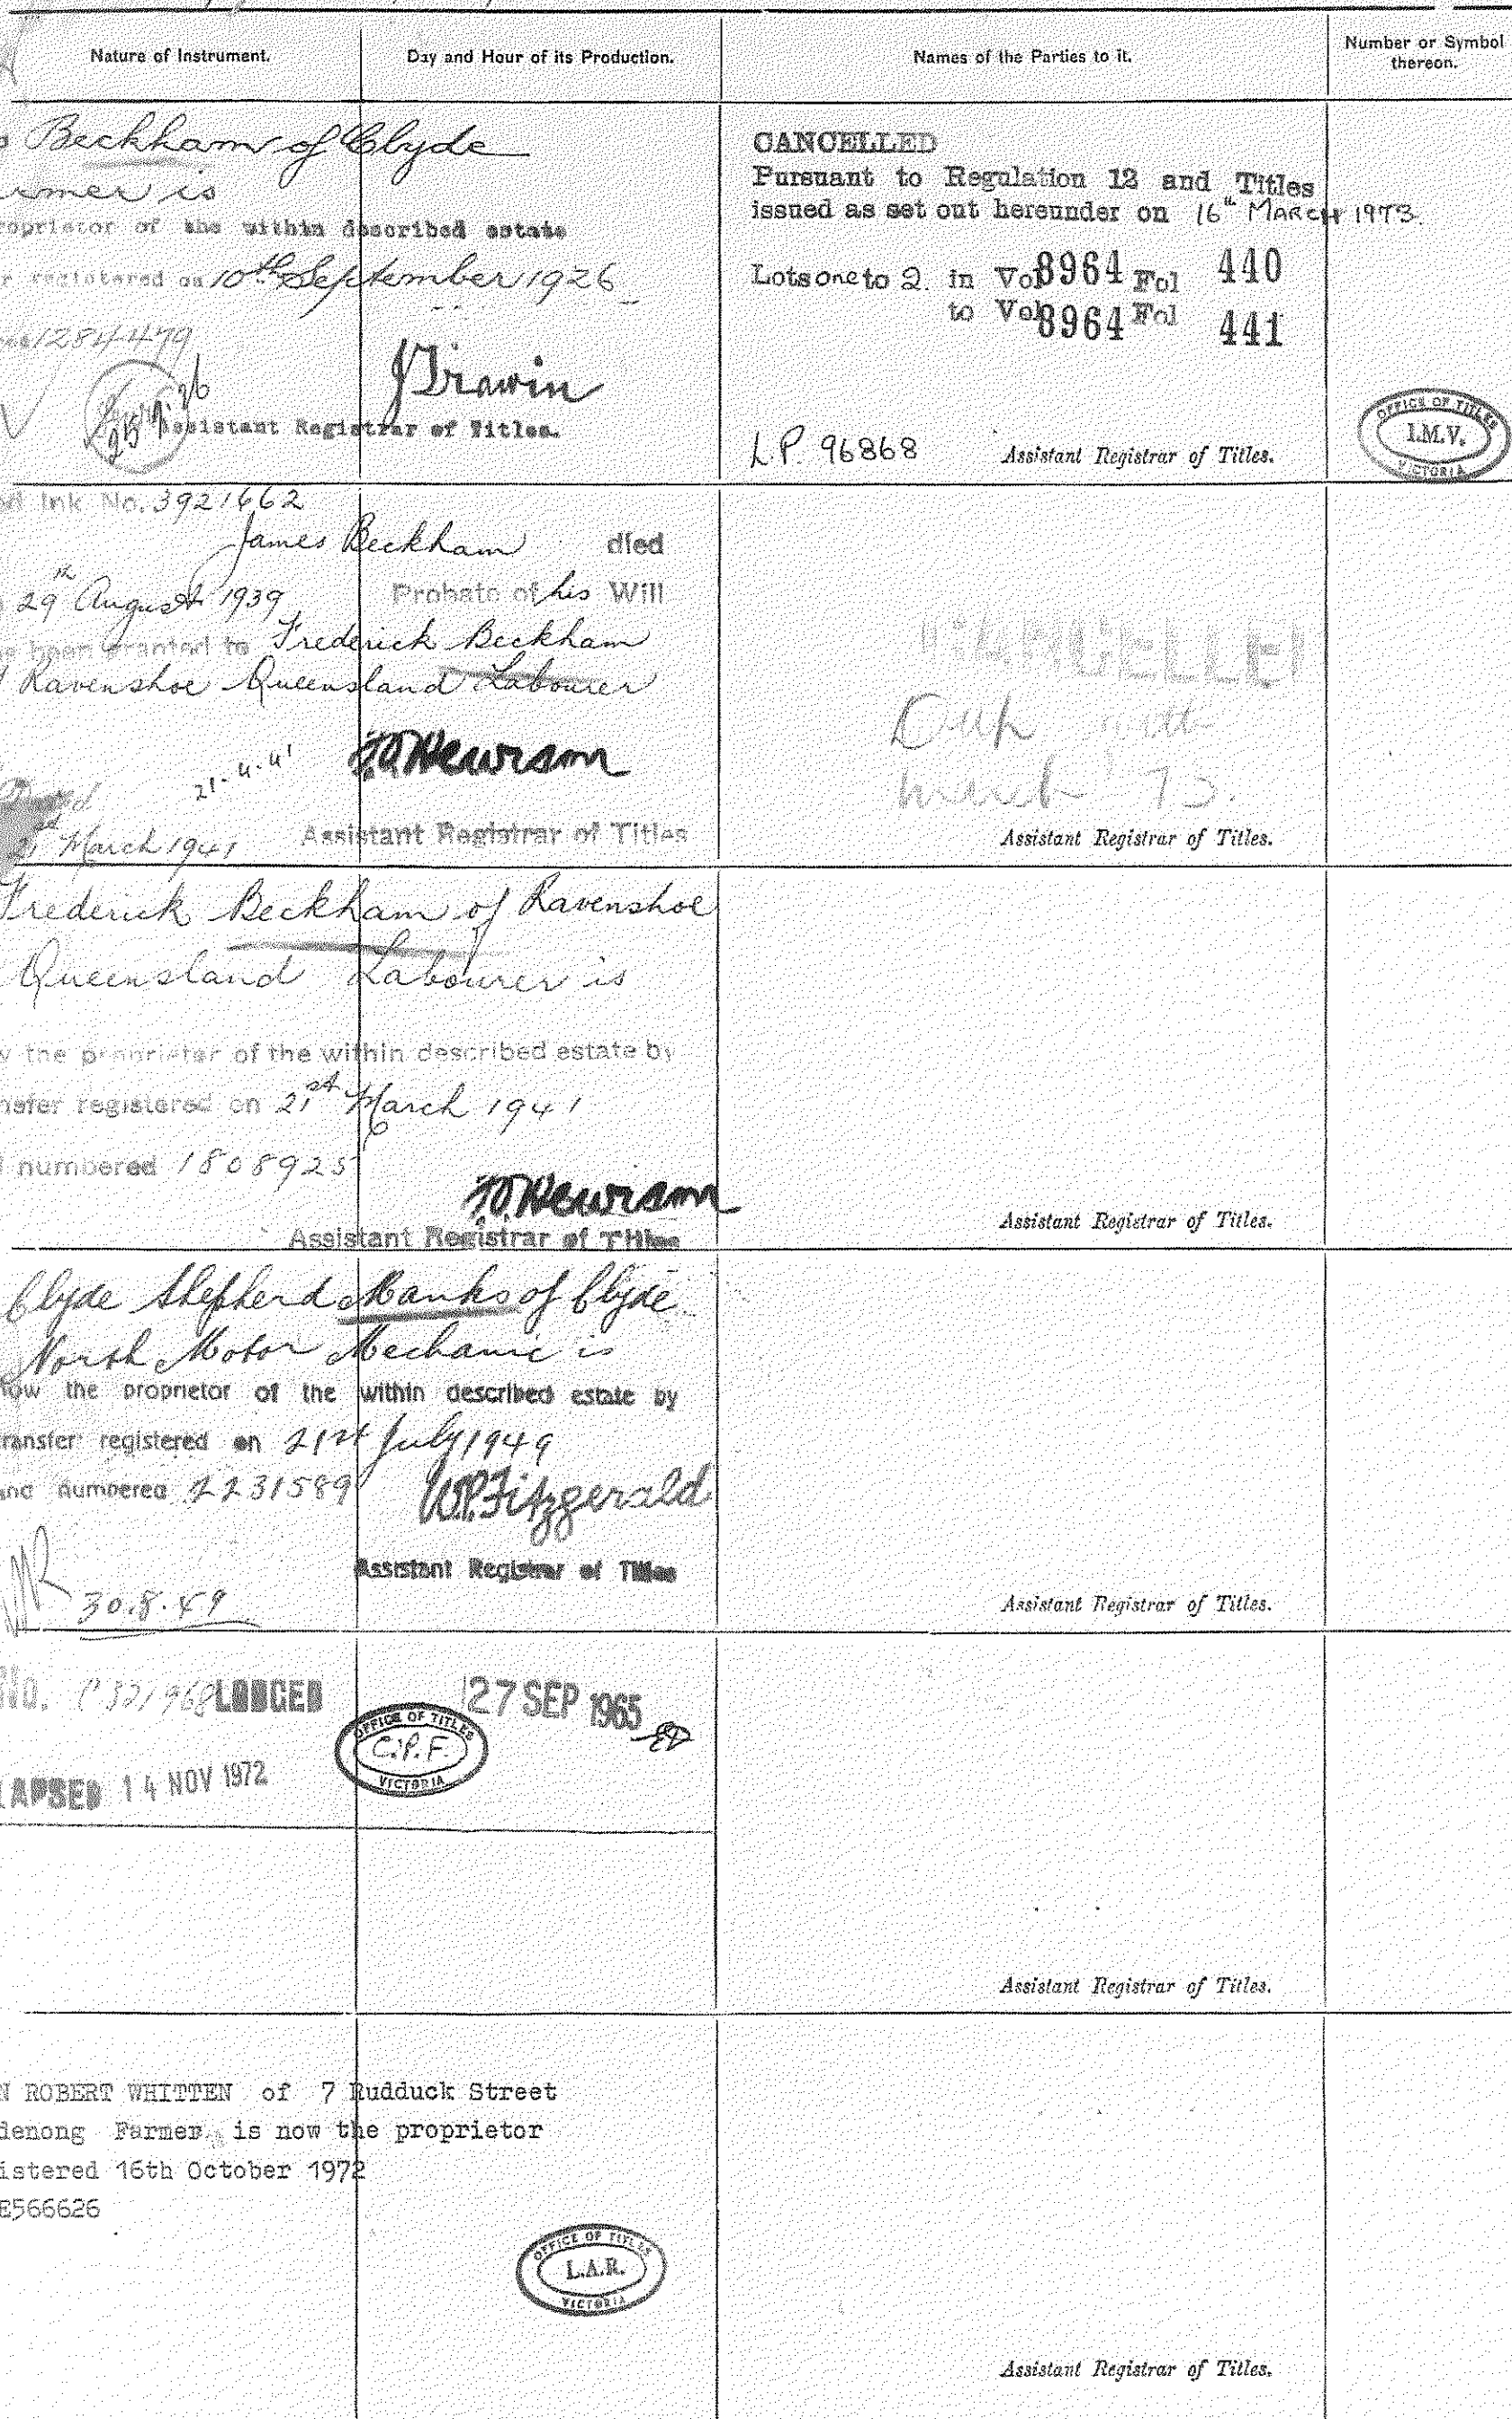 Nature of Instrument.
Day and Hour of its Production.
Names of the Parties to it.
Number or Symbol
thereon.
Beckham of Clyde
rmer is
roprietor of the within described estate
r registered on 10th September 1926
1284479
J Trawin
25.9.26
Assistant Registrar of Titles.
CANCELLED
Pursuant to Regulation 12 and Titles
issued as set out hereunder on 16th MARCH 1973.
Lots one to 2. in Vol 8964 Fol 440
to Vol 8964 Fol 441
L.P. 96868
Assistant Registrar of Titles.
OFFICE OF TITLES
I.M.V.
VICTORIA
ed Ink No. 3921662
James Beckham died
29th August 1939 Probate of his Will
s been granted to Frederick Beckham
Ravenshoe Queensland Labourer
21.4.41
21st March 1941
Assistant Registrar of Titles
CANCELLED
March 73.
Assistant Registrar of Titles.
Frederick Beckham of Ravenshoe
Queensland Labourer is
w the proprietor of the within described estate by
nsfer registered on 21st March 1941
numbered 1808925
Assistant Registrar of Titles
Assistant Registrar of Titles.
Clyde Shepherd Manks of Clyde
North Motor Mechanic is
now the proprietor of the within described estate by
transfer registered on 21st July 1949
and numbered 2231589
W.P. Fitzgerald
Assistant Registrar of Titles
30.8.49
Assistant Registrar of Titles.
No. LODGED 27 SEP 1965
OFFICE OF TITLES
C.P.F.
VICTORIA
LAPSED 14 NOV 1972
Assistant Registrar of Titles.
N ROBERT WHITTEN of 7 Rudduck Street
denong Farmer is now the proprietor
istered 16th October 1972
E566626
OFFICE OF TITLES
L.A.R.
VICTORIA
Assistant Registrar of Titles.